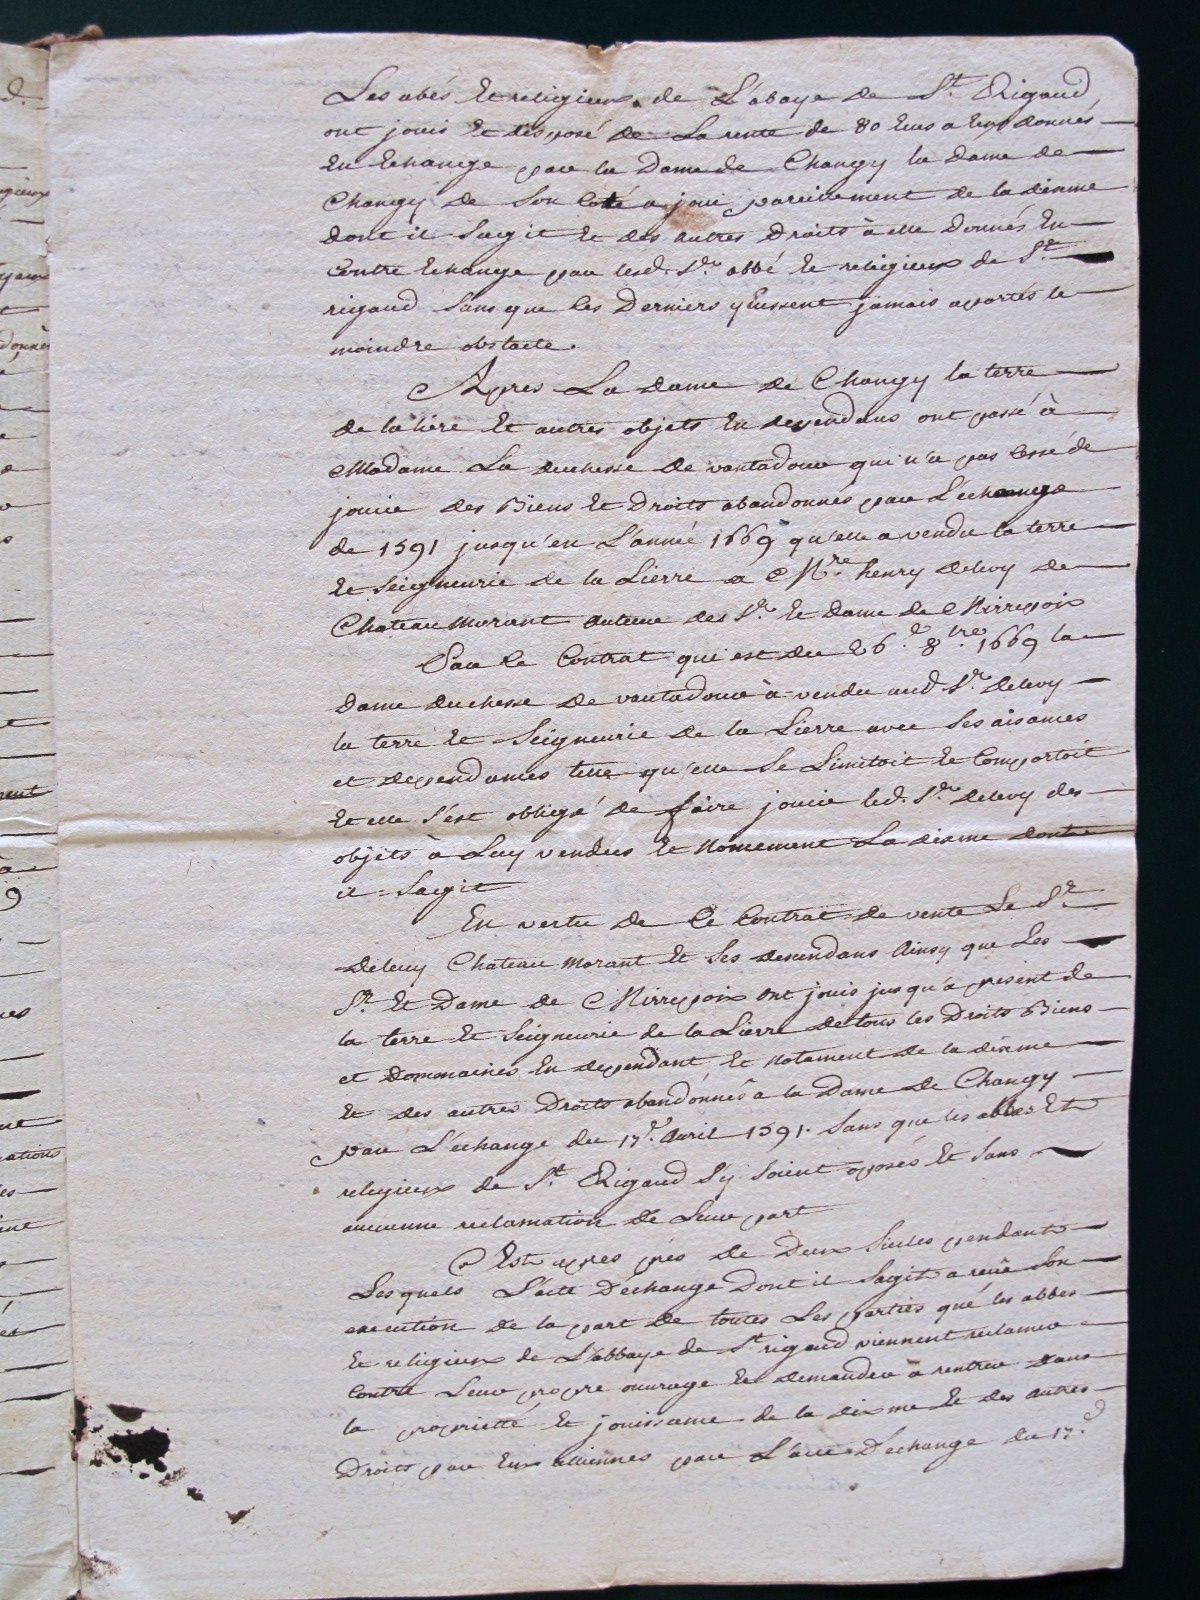 Les abés Et religieux de L'abaye de St. Rigaud
ont jouis Et disposé de La rente de 80 Ecus a Eux donnés
En Echange par la Dame de Changy la dame de
Changy de Son Coté a joui pareillement de la dixme
dont il Sagit Et des autres Droits à elle Donnés En
Contre Echange par lesd. Srs. abbé Et religieux de St.
rigaud Sans que Ces Derniers y Eussent jamais aportés le
moindre obstacle.
Apres La dame de Changy la terre
de la liere Et autres objets En dependans ont passé à
Madame La duchesse de vantadour qui n'a pas Cessé de
jouir des Biens Et Droits abandonnés par L'échange
de 1591 jusqu'en L'année 1669 qu'elle a vendu la terre
Et Seigneurie de la Lierre a Mre. henry delevy de
Chateau morant auteur des Sr. Et Dame de Mirrepoix
Par le Contrat qui est du 26e. 8bre. 1669 la
dame duchesse de vantadour à vendu aud. Sr. delevy
la terre Et Seigneurie de la Lierre avec Ses aisances
et dependances telle qu'elle Se Limitoit Et Comportoit
Et elle S'est obligé de faire jouir led. Sr. delevy des
objets à Luy vendus Et nomement La dixme dont
il Sagit
En vertu de Ce Contrat de vente Le Sr.
delevy Chateau morant Et Ses descendans Ainsy que Les
Sr. Et Dame de Mirrepoix ont jouis jusqu'a present de
la terre Et Seigneurie de la Lierre de tous les Droits Biens
et Dommaines En dependant, Et notament de la dixme
Et des autres Droits abandonnés a la Dame de Changy
par L'échange du 17e. Avril 1591. Sans que les abbés Et
religieux de St. Rigaud S'y Soient oposés Et Sans
aucunne reclamation de Leur part
C'Est apres prés de Deux Siecles pendant
Lesquels L'acte D'échange Dont il Sagit a reçû Son
execution de la part de toutes Les parties que les abbés
Et religieux de L'abbaye de St. rigaud viennent reclamer
Contre Leur propre ouvrage Et demander a rentrer dans
la proprietté Et jouissance de la dixme Et des autres
Droits par Eux alliennés par L'acte D'echange du 17e.